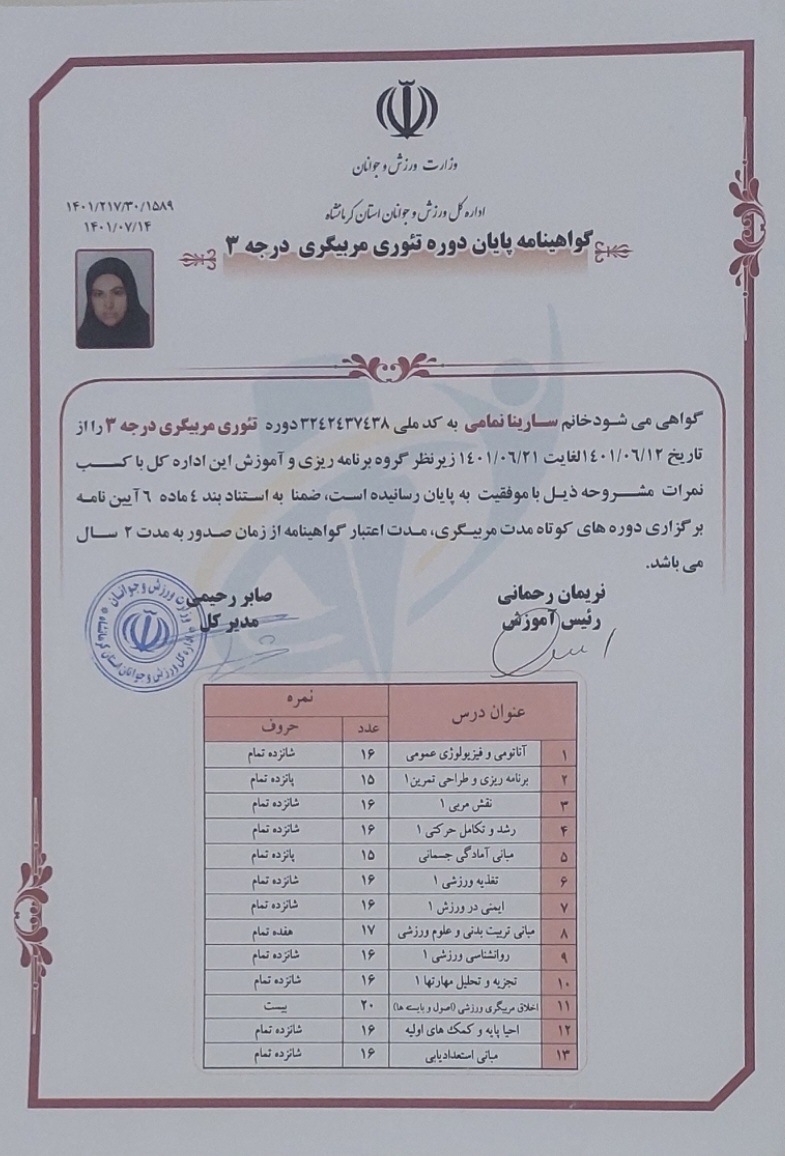 وزارت ورزش و جوانان
اداره کل ورزش و جوانان استان کرمانشاه
۱۴۰۱/۲۱۷/۳۰/۱۵۸۹
۱۴۰۱/۰۷/۱۴
گواهینامه پایان دوره تئوری مربیگری درجه ۳
گواهی می شودخانم سارینا نمامی به کد ملی ۳۲۴۲۴۳۷۴۳۸ دوره تئوری مربیگری درجه ۳ را از
تاریخ ۱۴۰۱/۰۶/۱۲ لغایت ۱۴۰۱/۰۶/۲۱ زیرنظر گروه برنامه ریزی و آموزش این اداره کل با کسب
نمرات مشروحه ذیل با موفقیت به پایان رسانیده است، ضمنا به استناد بند ۴ ماده ۶ آیین نامه
برگزاری دوره های کوتاه مدت مربیگری، مدت اعتبار گواهینامه از زمان صدور به مدت ۲ سال
می باشد.
نریمان رحمانی
رئیس آموزش
صابر رحیمی
مدیر کل
وزارت ورزش و جوانان
اداره کل ورزش و جوانان استان کرمانشاه
عنوان درس نمره
عدد حروف
۱ آناتومی و فیزیولوژی عمومی ۱۶ شانزده تمام
۲ برنامه ریزی و طراحی تمرین۱ ۱۵ پانزده تمام
۳ نقش مربی ۱ ۱۶ شانزده تمام
۴ رشد و تکامل حرکتی ۱ ۱۶ شانزده تمام
۵ مبانی آمادگی جسمانی ۱۵ پانزده تمام
۶ تغذیه ورزشی ۱ ۱۶ شانزده تمام
۷ ایمنی در ورزش ۱ ۱۶ شانزده تمام
۸ مبانی تربیت بدنی و علوم ورزشی ۱۷ هفده تمام
۹ روانشناسی ورزشی ۱ ۱۶ شانزده تمام
۱۰ تجزیه و تحلیل مهارتها ۱ ۱۶ شانزده تمام
۱۱ اخلاق مربیگری ورزشی (اصول و بایسته ها) ۲۰ بیست
۱۲ احیا پایه و کمک های اولیه ۱۶ شانزده تمام
۱۳ مبانی استعدادیابی ۱۶ شانزده تمام